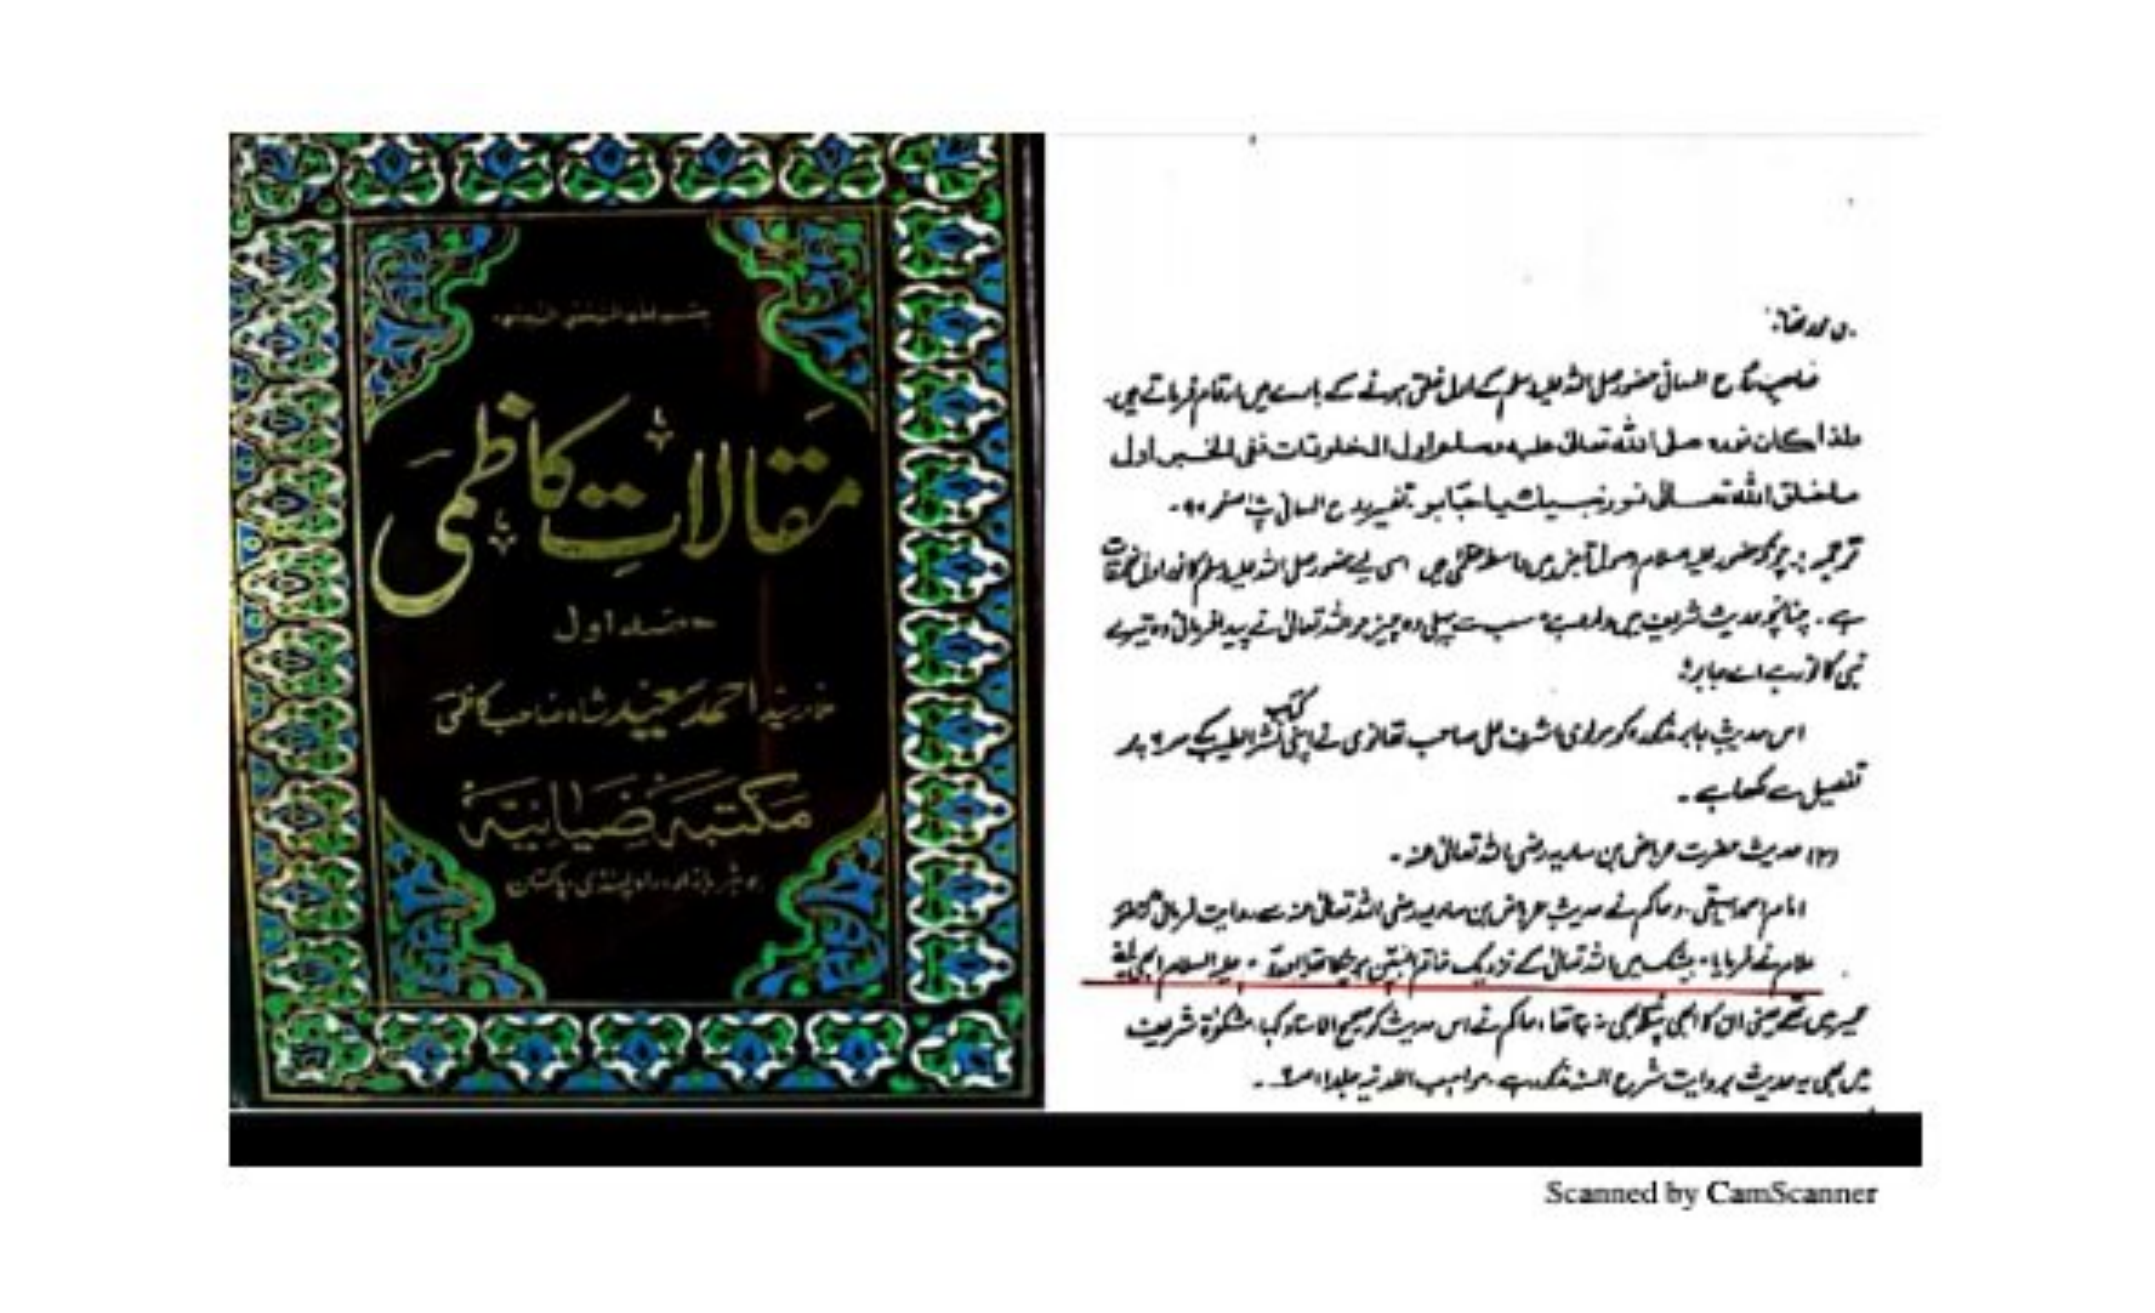 بسم الله الرحمن الرحيم
مقالاتِ کاظمی
حصہ اول
علامہ سید احمد سعید شاہ صاحب کاظمی
مکتبہ ضیائیہ
بازار، راولپنڈی، پاکستان
صاحب روح المعانی حضور صلی اللہ علیہ وسلم کے اول خلق ہونے کے بارے میں ارقام فرماتے ہیں۔
ولذا كان نوره صلى الله تعالى عليه وسلم اول المخلوقات ففى الخبر اول
ما خلق الله تعالى نور نبيك يا جابر۔ تفسیر روح المعانی پ صفحہ
ترجمہ: چونکہ حضور علیہ السلام وصول فیض میں واسطہ عظمیٰ ہیں اسی لیے حضور صلی اللہ علیہ وسلم کا نور اول مخلوقات
ہے۔ چنانچہ حدیث شریف میں وارد ہے "سب سے پہلی وہ چیز جو اللہ تعالیٰ نے پیدا فرمائی وہ تیرے
نبی کا نور ہے اے جابر"
اس حدیث جابر مذکورہ کو مولوی اشرف علی صاحب تھانوی نے اپنی کتاب نشر الطیب کے ص ۶ پر
تفصیل سے لکھا ہے۔
(۲) حدیث حضرت عرباض بن ساریہ رضی اللہ تعالیٰ عنہ۔
امام احمد، بیہقی و حاکم نے حدیث عرباض بن ساریہ رضی اللہ تعالیٰ عنہ سے روایت فرمائی
سلام نے فرمایا۔ بیشک میں اللہ تعالیٰ کے نزدیک خاتم النبیین ہو چکا تھا اور آدم علیہ السلام ابھی اپنے
خمیر میں تھے یعنی ان کا ابھی پتلا بھی نہ بنا تھا، حاکم نے اس حدیث کو صحیح الاسناد کہا، مشکوٰۃ شریف
میں بھی یہ حدیث بروایت شرح السنہ مذکور ہے۔ مواہب اللدنیہ جلد ۱، ص ۶۔
Scanned by CamScanner